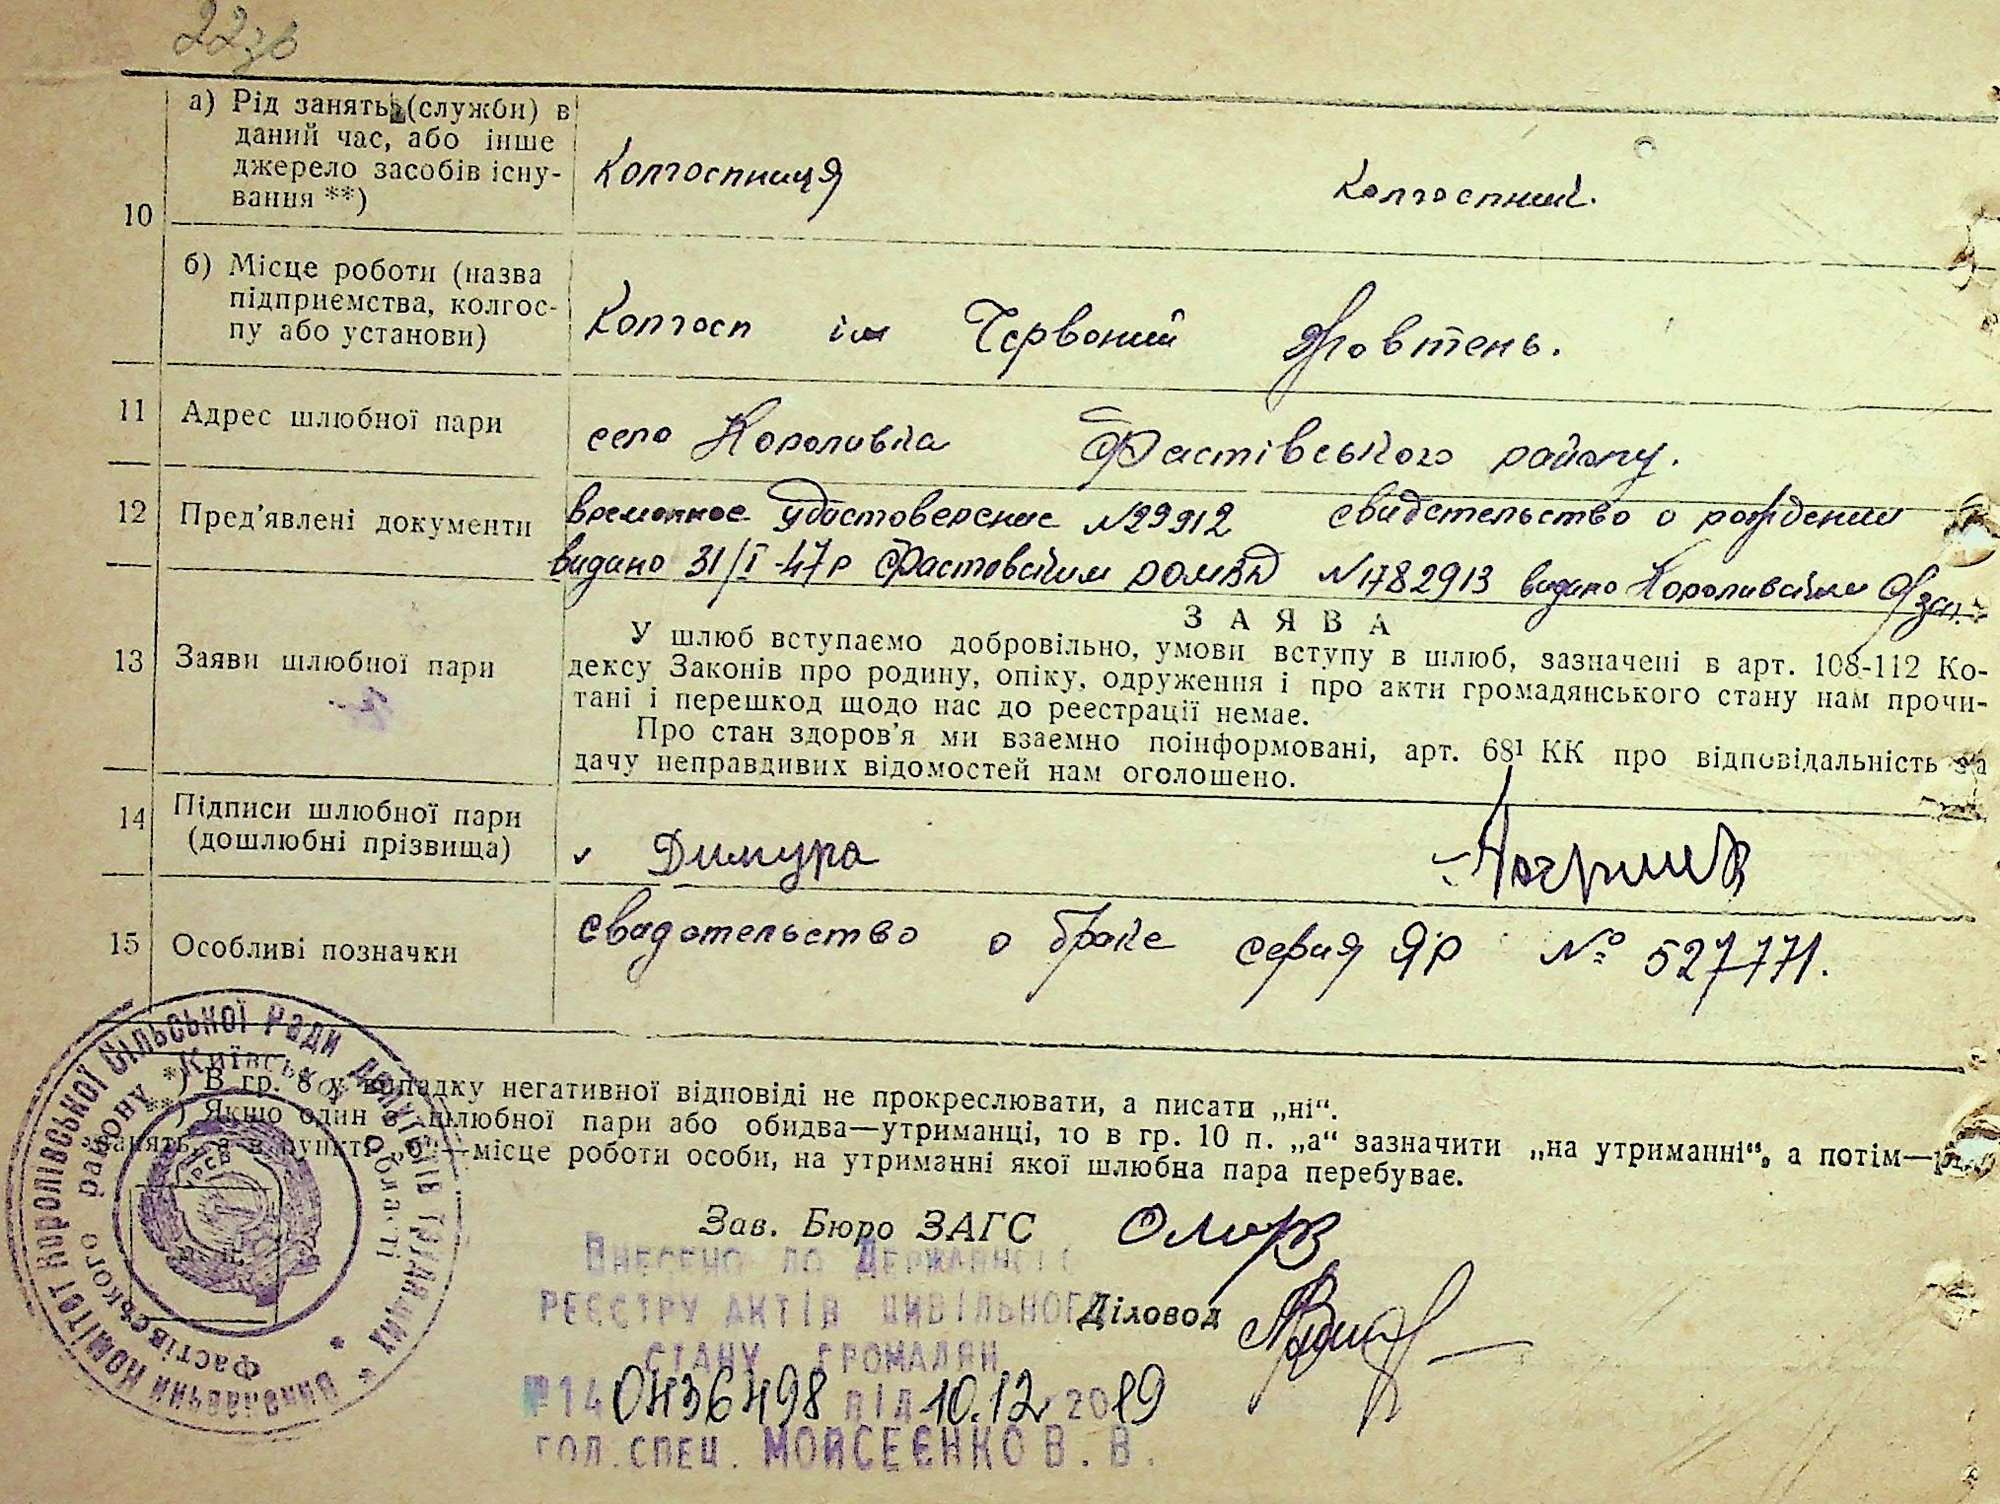 22зв
а) Рід занять (служби) в
даний час, або інше
джерело засобів існу-
вання **)
10
Колгоспниця
Колгоспник.
б) Місце роботи (назва
підприємства, колгос-
пу або установи)
Колгосп ім Червоний Жовтень.
11 Адрес шлюбної пари
село Короливка Фастівського району.
12 Пред'явлені документи
временное удостоверение №29912 свидетельство о рождении
видано 31/I-47р Фастовским РОМВД №1782913 видано Короливским Язаг.
ЗАЯВА
13 Заяви шлюбної пари
У шлюб вступаємо добровільно, умови вступу в шлюб, зазначені в арт. 108-112 Ко-
дексу Законів про родину, опіку, одруження і про акти громадянського стану нам прочи-
тані і перешкод щодо нас до реестрації немає.
Про стан здоров'я ми взаємно поінформовані, арт. 68¹ КК про відповідальність за
дачу неправдивих відомостей нам оголошено.
14 Підписи шлюбної пари
(дошлюбні прізвища)
Димура
15 Особливі позначки
Свидетельство о браке серия ЯР № 527771.
*) В гр. 8 у випадку негативної відповіді не прокреслювати, а писати „ні“.
**) Якщо один з шлюбної пари або обидва—утриманці, то в гр. 10 п. „а“ зазначити „на утриманні“, а потім—рід
занять, а в пункті „б“—місце роботи особи, на утриманні якої шлюбна пара перебуває.
Виконавчий комітет Королівської Сільської Ради депутатів трудящих
Фастівського району * Київської області
УРСР
Зав. Бюро ЗАГС
Діловод
Внесено до Державного
реєстру актів цивільного
стану громадян
№14 0436498 від 10.12 2019
гол. спец. Мойсеєнко В. В.